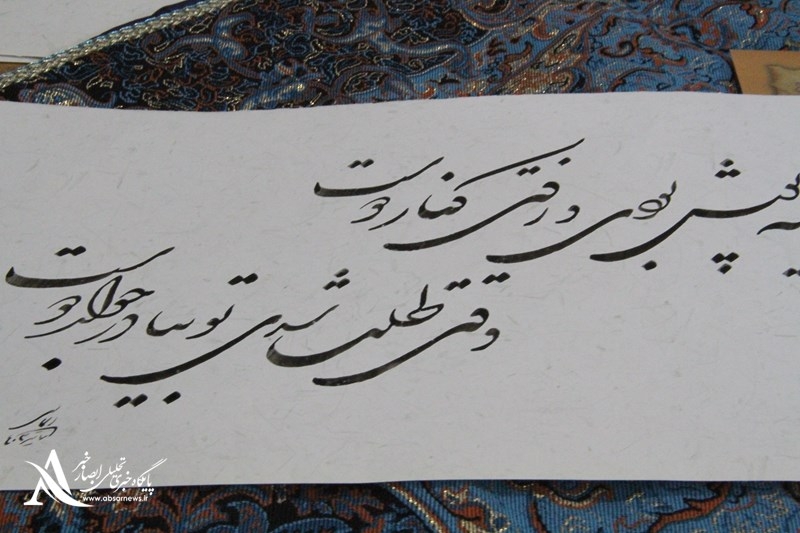 پیش بودی و رفتی کنار دوست
وقتی طلب شدی تو بیا در جواب دوست
پایگاه خبری تحلیلی ابصار خبر
www.absarnews.ir